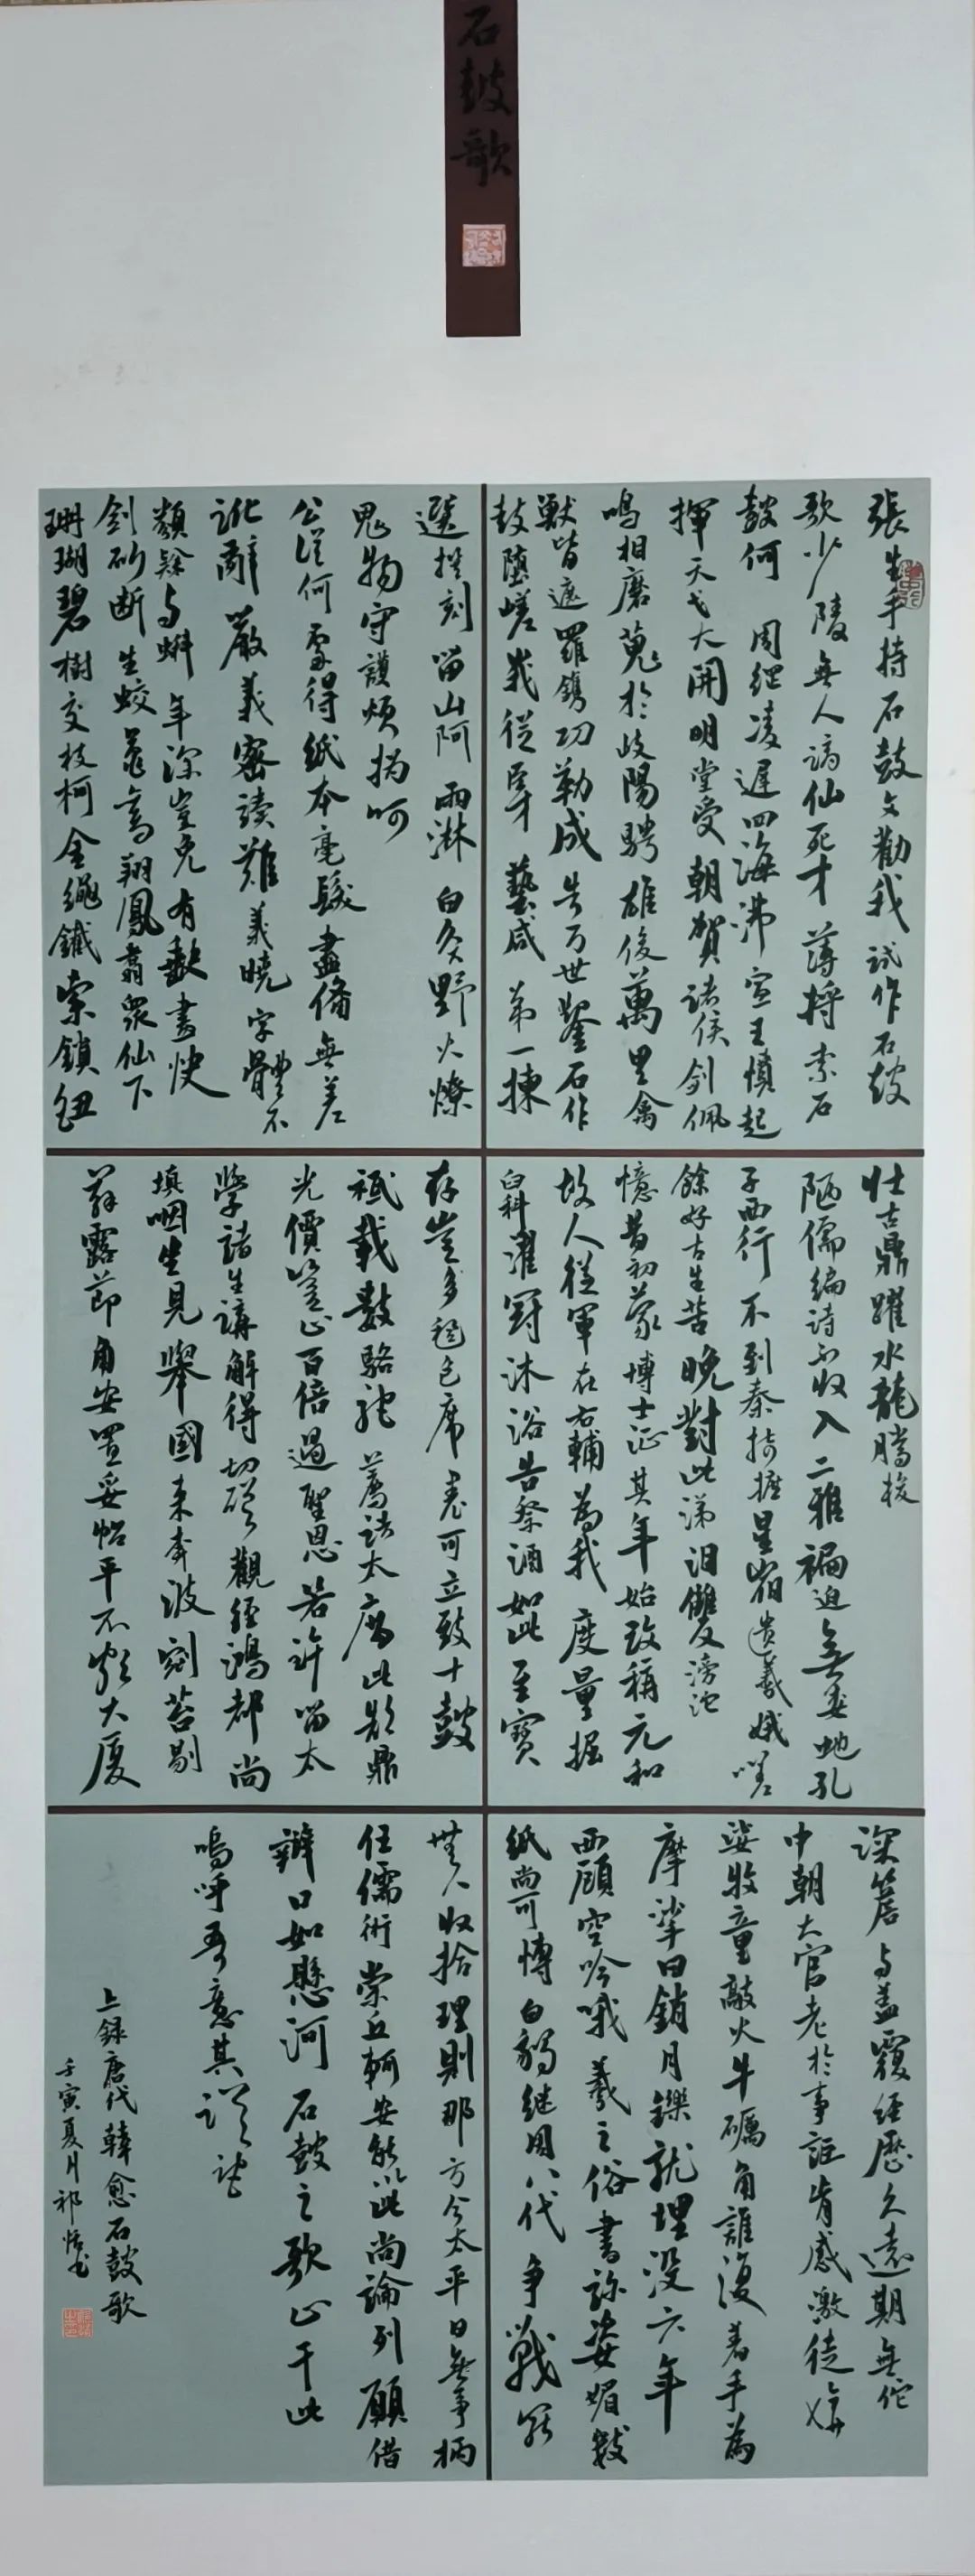 石鼓歌
張生手持石鼓文勸我試作石鼓
歌少陵無人謫仙死才薄將奈石
鼓何周綱凌遲四海沸宣王憤起
揮天戈大開明堂受朝賀諸侯劍佩
鳴相磨蒐於岐陽騁雄俊萬里禽
獸皆遮羅鐫功勒成告万世鑿石作
鼓隳嵯峨從臣才藝咸第一揀
選撰刻留山阿雨淋白炙野火燎
鬼物守護煩撝呵
公從何處得紙本毫髮盡備無差
訛辭嚴義密讀難義曉字體不
類隸与蝌年深豈免有缺畫快
劍砍斷生蛟鼉鸞翔鳳翥眾仙下
珊瑚碧樹交枝柯金繩鐵索鎖鈕
壯古鼎躍水龍騰梭
陋儒編詩不收入二雅褊迫無委蛇孔
子西行不到秦掎摭星宿遺羲娥嗟
餘好古生苦晚對此涕泪雙滂沱
憶昔初蒙博士征其年始改稱元和
故人從軍在右輔為我度量掘
臼科濯冠沐浴告祭酒如此至寶
存豈多氈包席裹可立致十鼓
祇載數駱駝薦諸太廟比郜鼎
光價豈止百倍過聖恩若許留太
學諸生講解得切磋觀經鴻都尚
填咽坐見舉國來奔波剜苔剔
蘚露節角安置妥帖平不頗大廈
深簷与蓋覆經歷久遠期無佗
中朝大官老於事詎肯感激徒媕
娿牧童敲火牛礪角誰復着手為
摩挲日銷月鑠就埋没六年
西顧空吟哦羲之俗書趁姿媚數
紙尚可博白鵝继周八代争戰罷
無人收拾理則那方今太平日無事柄
任儒術崇丘軻安能以此尚論列願借
辯口如懸河石鼓之歌止于此
嗚呼吾意其蹉跎
上録唐代韓愈石鼓歌
壬寅夏月祁恬书